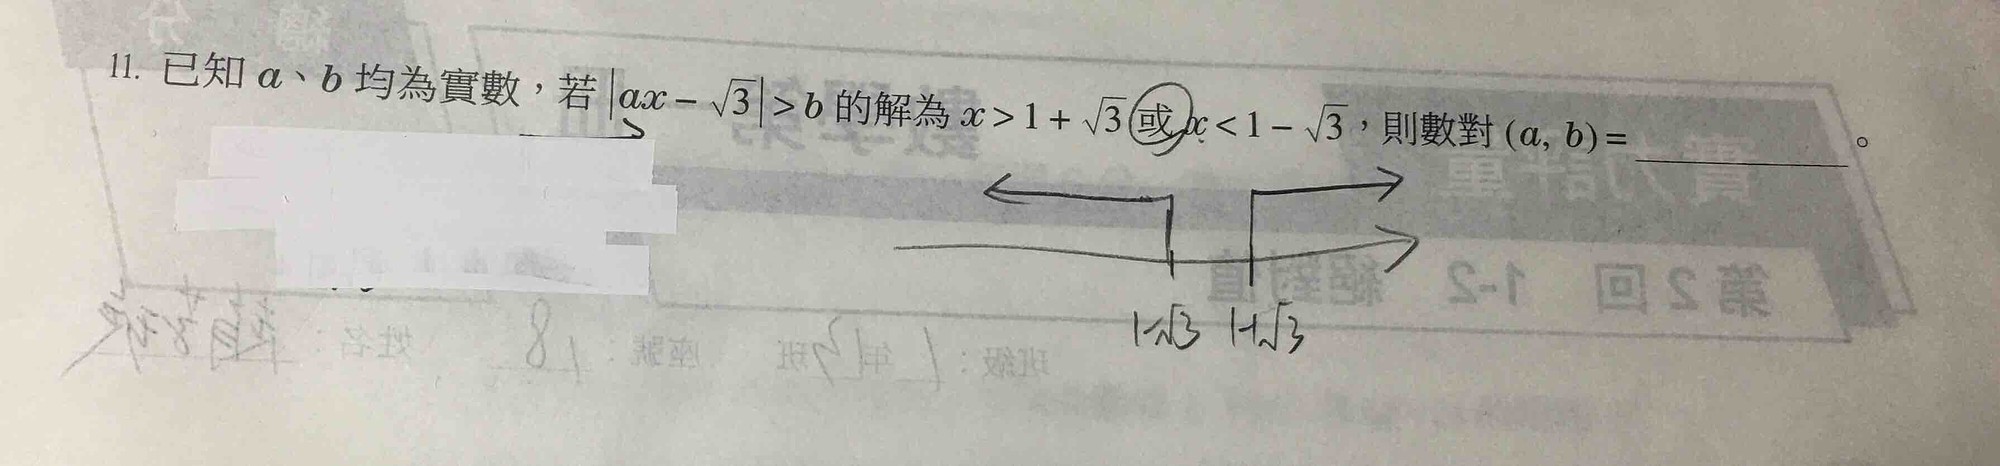 11. 已知 a、b 均為實數，若 |ax − √3| > b 的解為 x > 1 + √3 或 x < 1 − √3，則數對 (a, b) = ________。
1-√3 1+√3
第 2 回 1-2 絕對值
班級：1 年 13 班 座號：18 姓名：